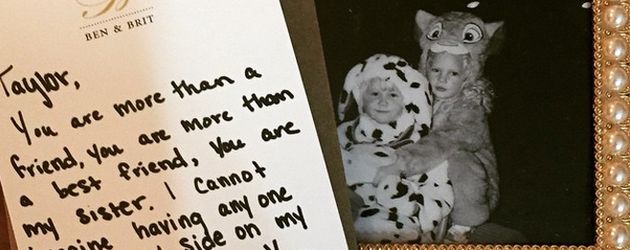 B
BEN & BRIT
Taylor,
You are more than a
friend, you are more than
a best friend, you are
my sister. I cannot
having any one
side on my